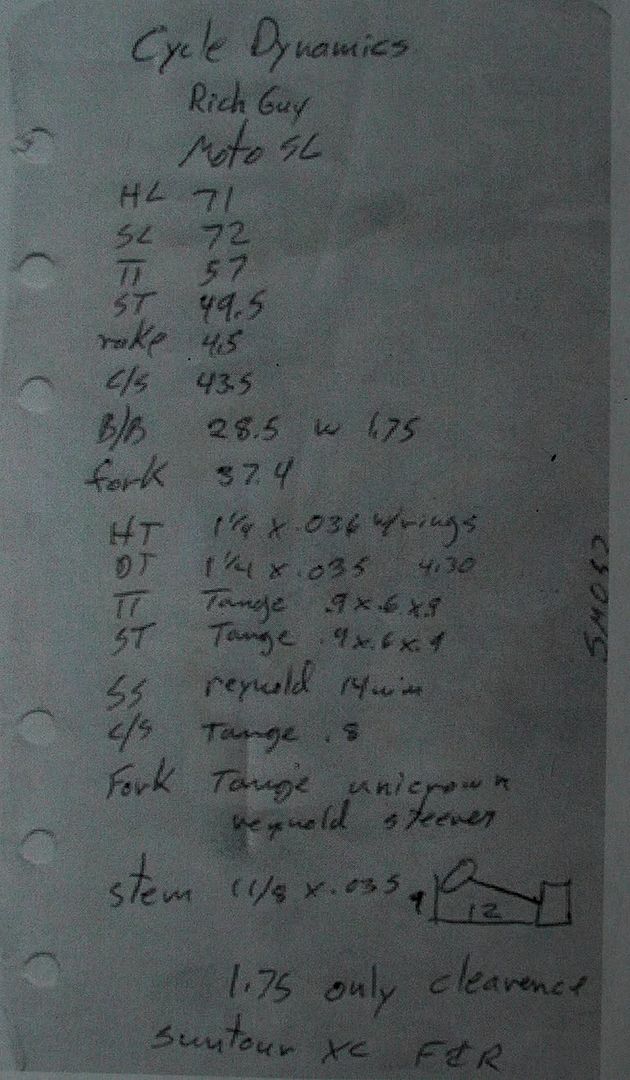 Cycle Dynamics
Rich Guy
Moto SL
HL 71
SL 72
TT 57
ST 49.5
rake 4.5
C/S 43.5
B/B 28.5 w 1.75
fork 37.4
HT 1 1/4 x .036 w/rings
DT 1 1/4 x .035 4.30
TT Tange .9 x .6 x .9
ST Tange .9 x .6 x .9
SS reynold 14mm
C/S Tange .8
Fork Tange unicrown
reynold steerer
stem 1 1/8 x .035 9 12
1.75 only clearence
Suntour XC F&R